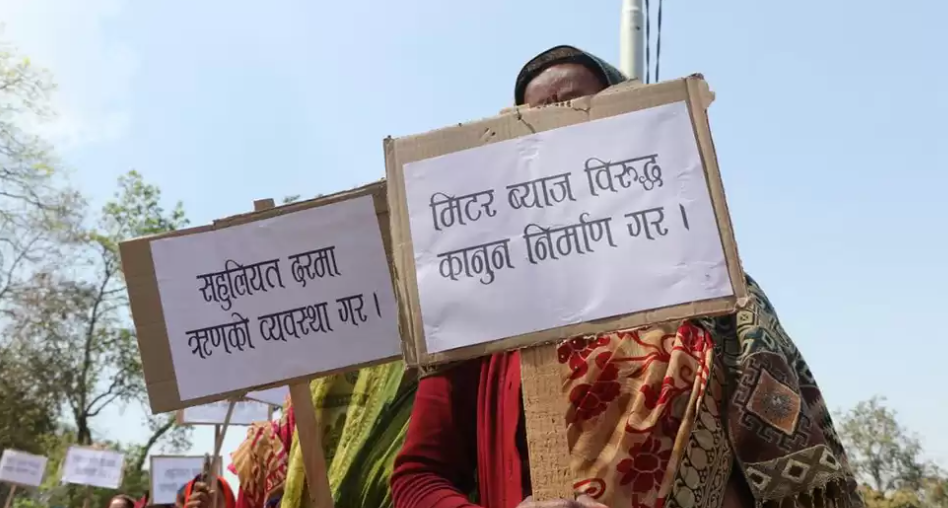 सहुलियत दरमा
ऋणको व्यवस्था गर ।
मिटर ब्याज विरुद्ध
कानुन निर्माण गर ।